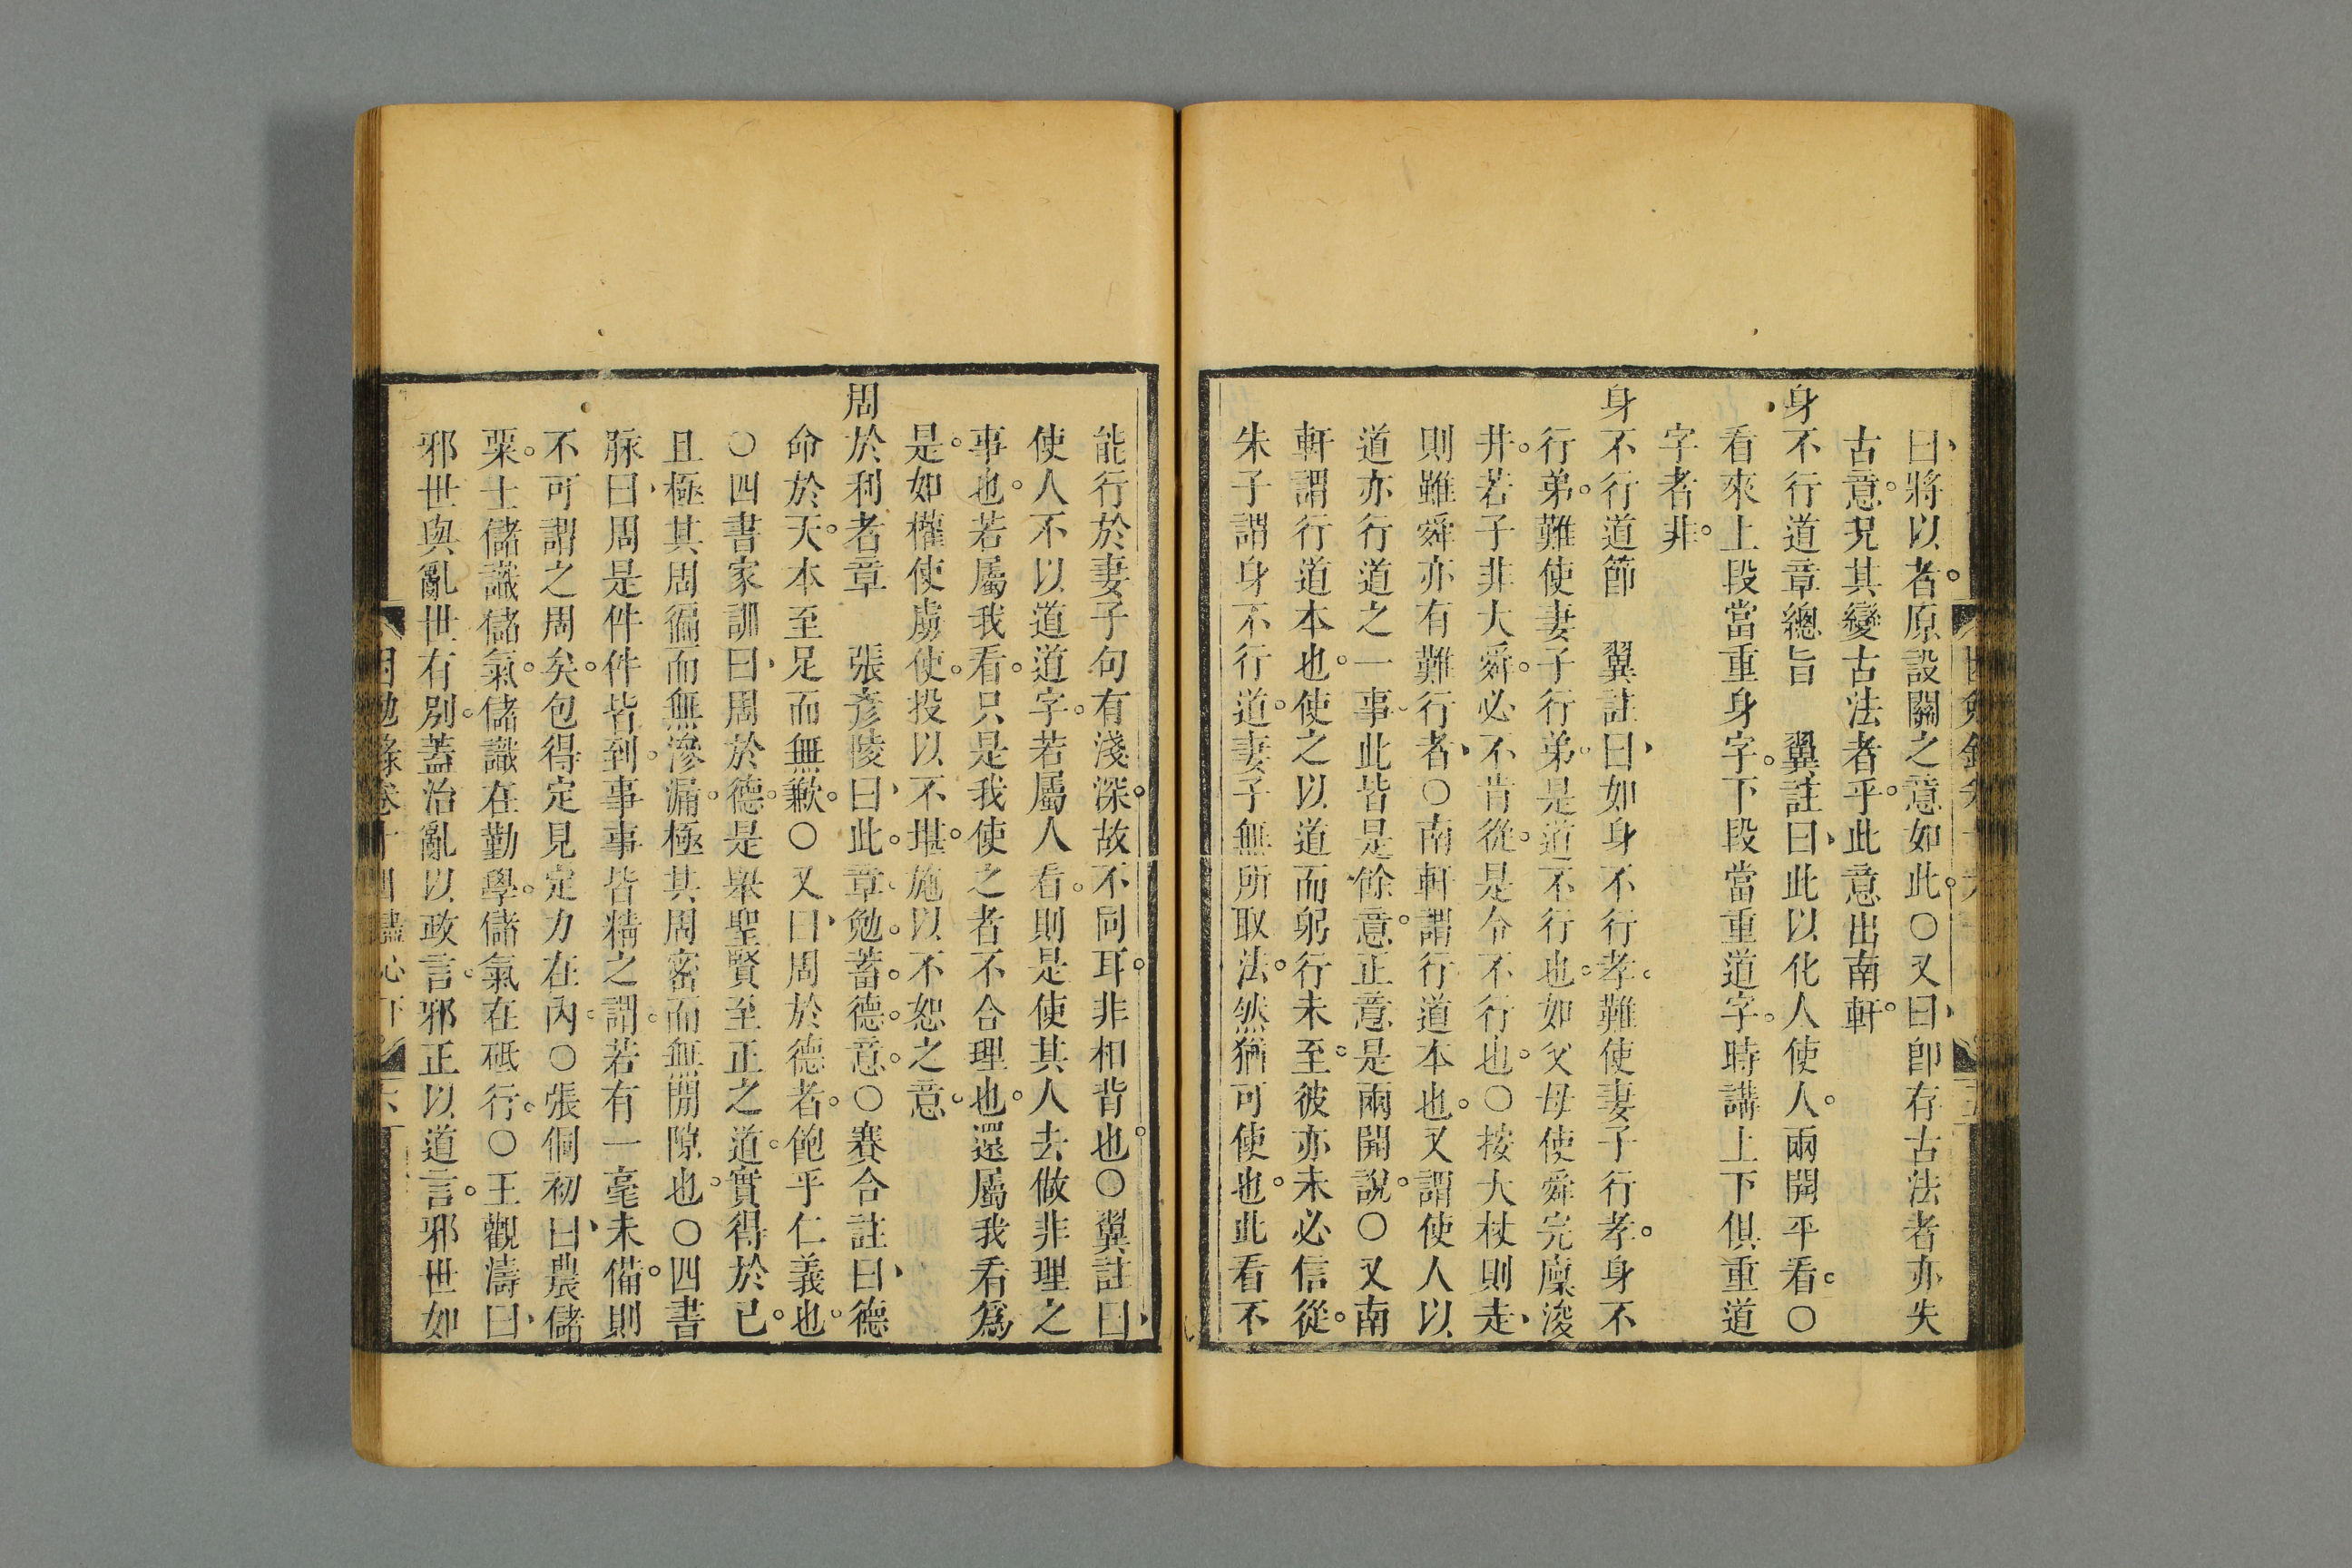 曰將以者原設關之意如此○又曰卽存古法者亦失
古意況其變古法者乎此意出南軒
身不行道章總旨　翼註曰此以化人使人兩開平看○
看來上段當重身字下段當重道字時講上下俱重道
字者非
身不行道節　翼註曰如身不行孝難使妻子行孝身不
行弟難使妻子行弟是道不行也如父母使舜完廩浚
井若子非大舜必不肯從是令不行也○按大杖則走
則雖舜亦有難行者○南軒謂行道本也又謂使人以
道亦行道之一事此皆是餘意正意是兩開說○又南
軒謂行道本也使之以道而躬行未至彼亦未必信從
朱子謂身不行道妻子無所取法然猶可使也此看不
能行於妻子句有淺深故不同耳非相背也○翼註曰
使人不以道道字若屬人看則是使其人去做非理之
事也若屬我看只是我使之者不合理也還屬我看爲
是如權使虜使投以不堪施以不恕之意
周於利者章　張彥陵曰此章勉蓄德意○賽合註曰德
命於天本至足而無歉○又曰周於德者飽乎仁義也
○四書家訓曰周於德是舉聖賢至正之道實得於已
且極其周徧而無滲漏極其周密而無間隙也○四書
脉曰周是件件皆到事事皆精之謂若有一毫未備則
不可謂之周矣包得定見定力在內○張侗初曰農儲
粟士儲識儲氣儲識在勤學儲氣在砥行○王觀濤曰
邪世與亂世有別蓋治亂以政言邪正以道言邪世如
困勉錄卷十四盡心下
六